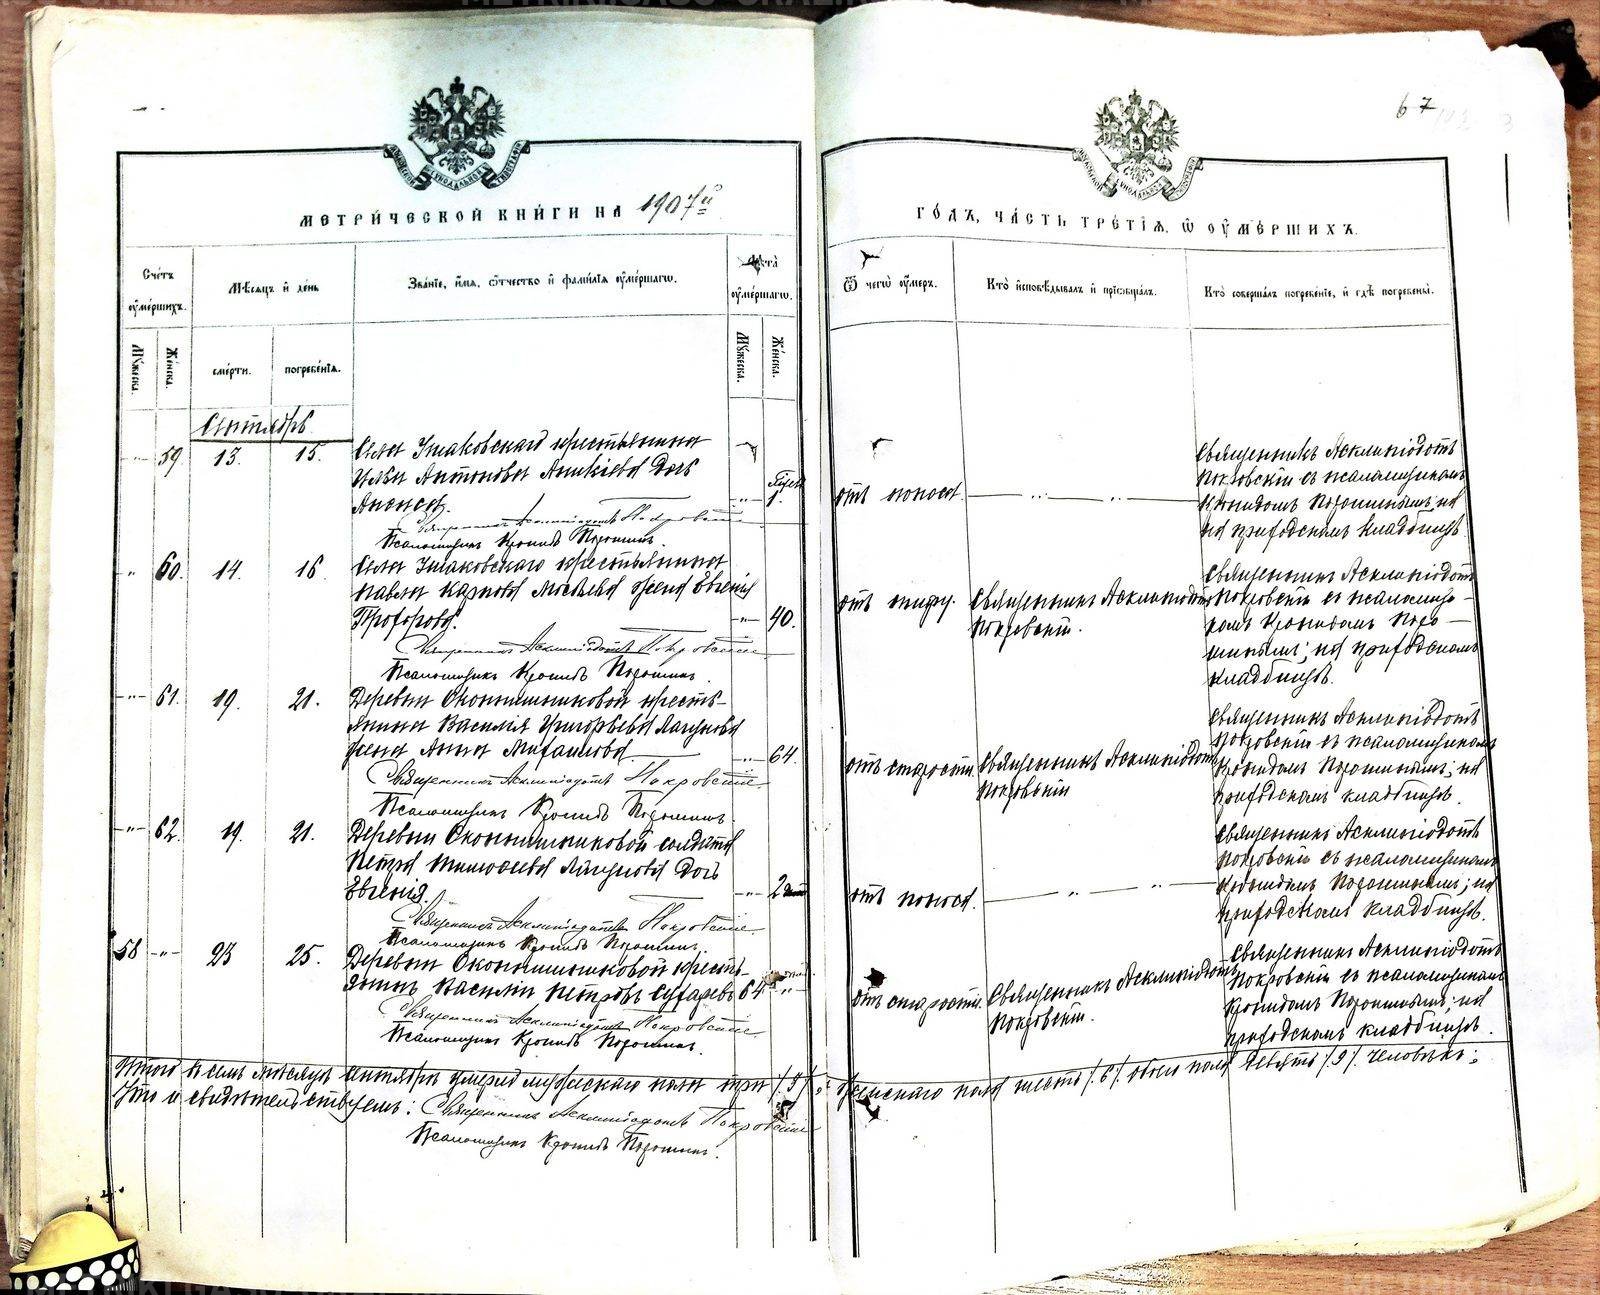 67
МЕТРИЧЕСКОЙ КНИГИ НА 1907й
ГОДЪ, ЧАСТЬ ТРЕТІЯ, Ѿ ОУМЕРШИХЪ.
Счетъ оумершихъ.
Мѣсяцъ и день
Званіе, имя, отчество и фамилія оумершагѡ.
Лѣта оумершагѡ.
Ѿ чегѡ оумеръ.
Кто исповѣдывалъ и пріобщалъ.
Кто совершалъ погребеніе, и гдѣ погребены.
Мужеска.
Женска.
смерти.
погребенія.
Мужеска.
Женска.
Сентябрь
59 13. 15.
Села крестьянина
Ильи Антонова дочь
1.
отъ поноса.
Священникъ Асклипіодотъ
Покровскій съ псаломщикомъ
Кронидомъ Порошинымъ; на
на приходскомъ кладбищѣ
Священникъ Асклипіодотъ Покровскій
Псаломщикъ Кронидъ Порошинъ.
60. 14. 16
Села крестьянина
Павла Карпова жена Евгенія
Прохорова.
40.
Священникъ Асклипіодотъ
Покровскій.
Священникъ Асклипіодотъ
Покровскій съ псаломщи-
комъ Кронидомъ Поро-
шинымъ; на приходскомъ
кладбищѣ.
Священникъ Асклипіодотъ Покровскій
Псаломщикъ Кронидъ Порошинъ.
61. 19. 21.
Деревни кресть-
янина Василія Григорьева Лагунова
жена Анна Михаилова
64.
отъ старости.
Священникъ Асклипіодотъ
Покровскій
Священникъ Асклипіодотъ
Покровскій съ псаломщикомъ
Кронидомъ Порошинымъ; на
приходскомъ кладбищѣ.
Священникъ Асклипіодотъ Покровскій.
Псаломщикъ Кронидъ Порошинъ.
62. 19. 21.
Деревни солдата
Петра Тимоѳеева Лагунова дочь
Евгенія.
2
отъ поноса.
Священникъ Асклипіодотъ
Покровскій съ псаломщикомъ
Кронидомъ Порошинымъ; на
приходскомъ кладбищѣ.
Священникъ Асклипіодотъ Покровскій.
Псаломщикъ Кронидъ Порошинъ.
58 23 25.
Деревни кресть-
янинъ Василій Петровъ Сухаревъ 64
отъ старости.
Священникъ Асклипіодотъ
Покровскій.
Священникъ Асклипіодотъ
Покровскій съ псаломщикомъ
Кронидомъ Порошинымъ; на
приходскомъ кладбищѣ.
Священникъ Асклипіодотъ Покровскій
Псаломщикъ Кронидъ Порошинъ.
Итого въ семъ мѣсяцѣ сентябрѣ умерло мужескаго пола три /3/, женскаго пола шесть /6/ обоего пола девять /9/ человѣкъ;
Что и свидѣтельствуемъ: Священникъ Асклипіодотъ Покровскій
Псаломщикъ Кронидъ Порошинъ.